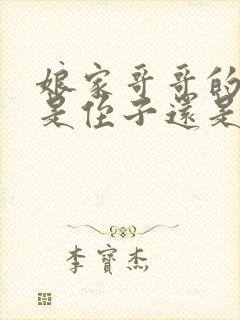 娘家哥哥的
是侄子還是
李寶杰